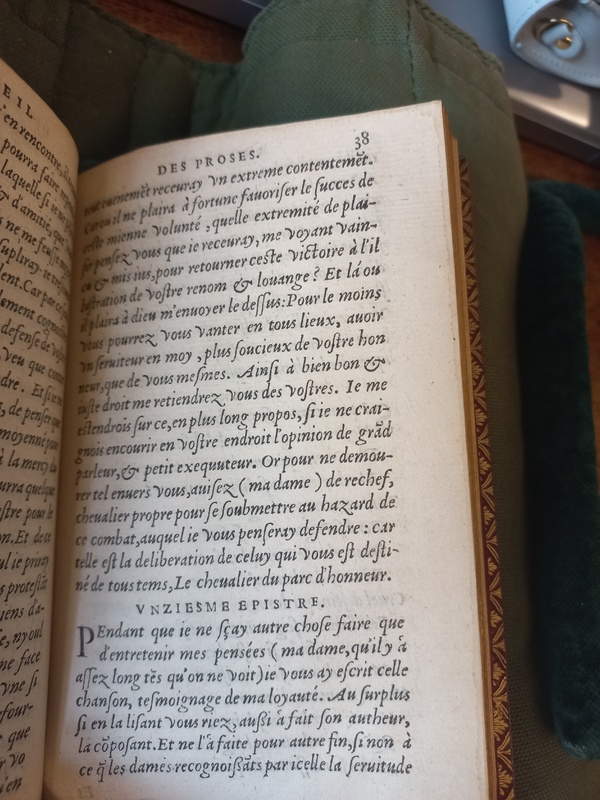 EIL
'en rencontre, il
pourra faire
laquelle si ie
d'amitié, que
s ne me feusse
supliray-ie
lent. Car par ce
lement cognoi
defense de vo
veu que com
dre. Et si ne
, de penser que
moyenne pour
à la mercy du
ourra quelque
stre pour le
on. Et de ce
ul ie priray
s protestât
iens d'a-
e, ny oul
me face
vne si
four-
que
r vo
n'en
DES PROSES. 38
tout euenemēt receuray vn extreme contentemēt.
Car ou il ne plaira à fortune fauoriser le succes de
ceste mienne volunté, quelle extremité de plai-
sir pensez vous que ie receuray, me voyant vain-
cu & mis ius, pour retourner ceste victoire à l'il
lustration de vostre renom & louange? Et lá ou
il plaira à dieu m'enuoyer le dessus: Pour le moins
vous pourrez vous vanter en tous lieux, auoir
vn seruiteur en moy, plus soucieux de vostre hon
neur, que de vous mesmes. Ainsi à bien bon &
iuste droit me retiendrez vous des vostres. Ie me
estendrois sur ce, en plus long propos, si ie ne crai-
gnois encourir en vostre endroit l'opinion de grād
parleur, & petit exequuteur. Or pour ne demou-
rer tel enuers vous, auisez (ma dame) de rechef,
cheualier propre pour se soubmettre au hazard de
ce combat, auquel ie vous penseray defendre: car
telle est la deliberation de celuy qui vous est desti-
né de tous tems, Le cheualier du parc d'honneur.
VNZIESME EPISTRE.
PEndant que ie ne sçay autre chose faire que
d'entretenir mes pensées (ma dame, qu'il y à
assez long tēs qu'on ne voit) ie vous ay escrit celle
chanson, tesmoignage de ma loyauté. Au surplus
si en la lisant vous riez, aussi à fait son autheur,
la cōposant. Et ne l'à faite pour autre fin, si non à
ce q̃ les dames recognoissāts par icelle la seruitude